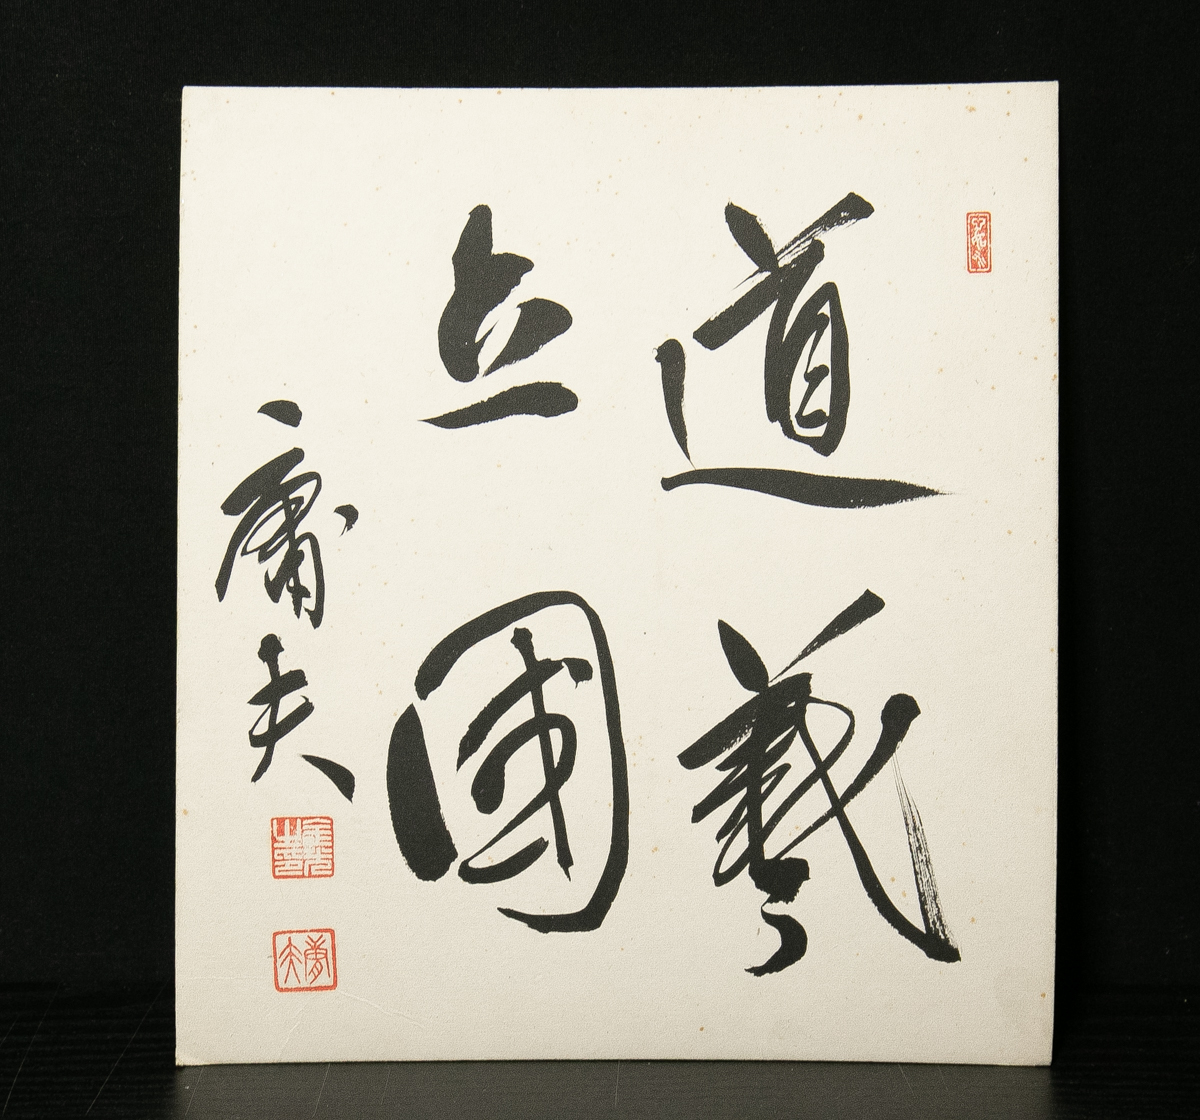 道義
立國
庸夫